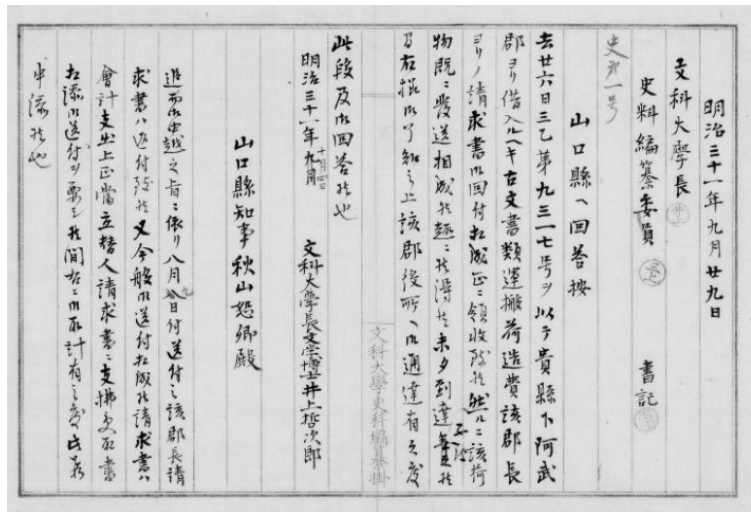 明治三十一年九月廿九日
文科大學長
史料編纂委員 書記
史第一号
山口縣ヘ回答按
去廿六日三乙第九三一七号ヲ以テ貴縣下阿武
郡ヨリ借入ルヘキ古文書類運搬荷造費該郡長
ヨリノ請求書御回付相成正ニ領収致候然ルニ該荷
物既ニ發送相成候趣ニ候得共未タ到達
右様御了知之上該郡役所ヘ御通達有之度
此段及御回答候也
明治三十一年九月
十月四日
文科大学長文学博士井上哲次郎
山口縣知事秋山恕卿殿
追而御申越之旨ニ依リ八月 日付送付之該郡長請
求書ハ返付致候又今般御送付相成候請求書ハ
會計支出上正當立替人請求書ニ支拂
相添御送付ヲ要シ候間右ニ御取計有之度此段
申添候也
文科大學史料編纂掛